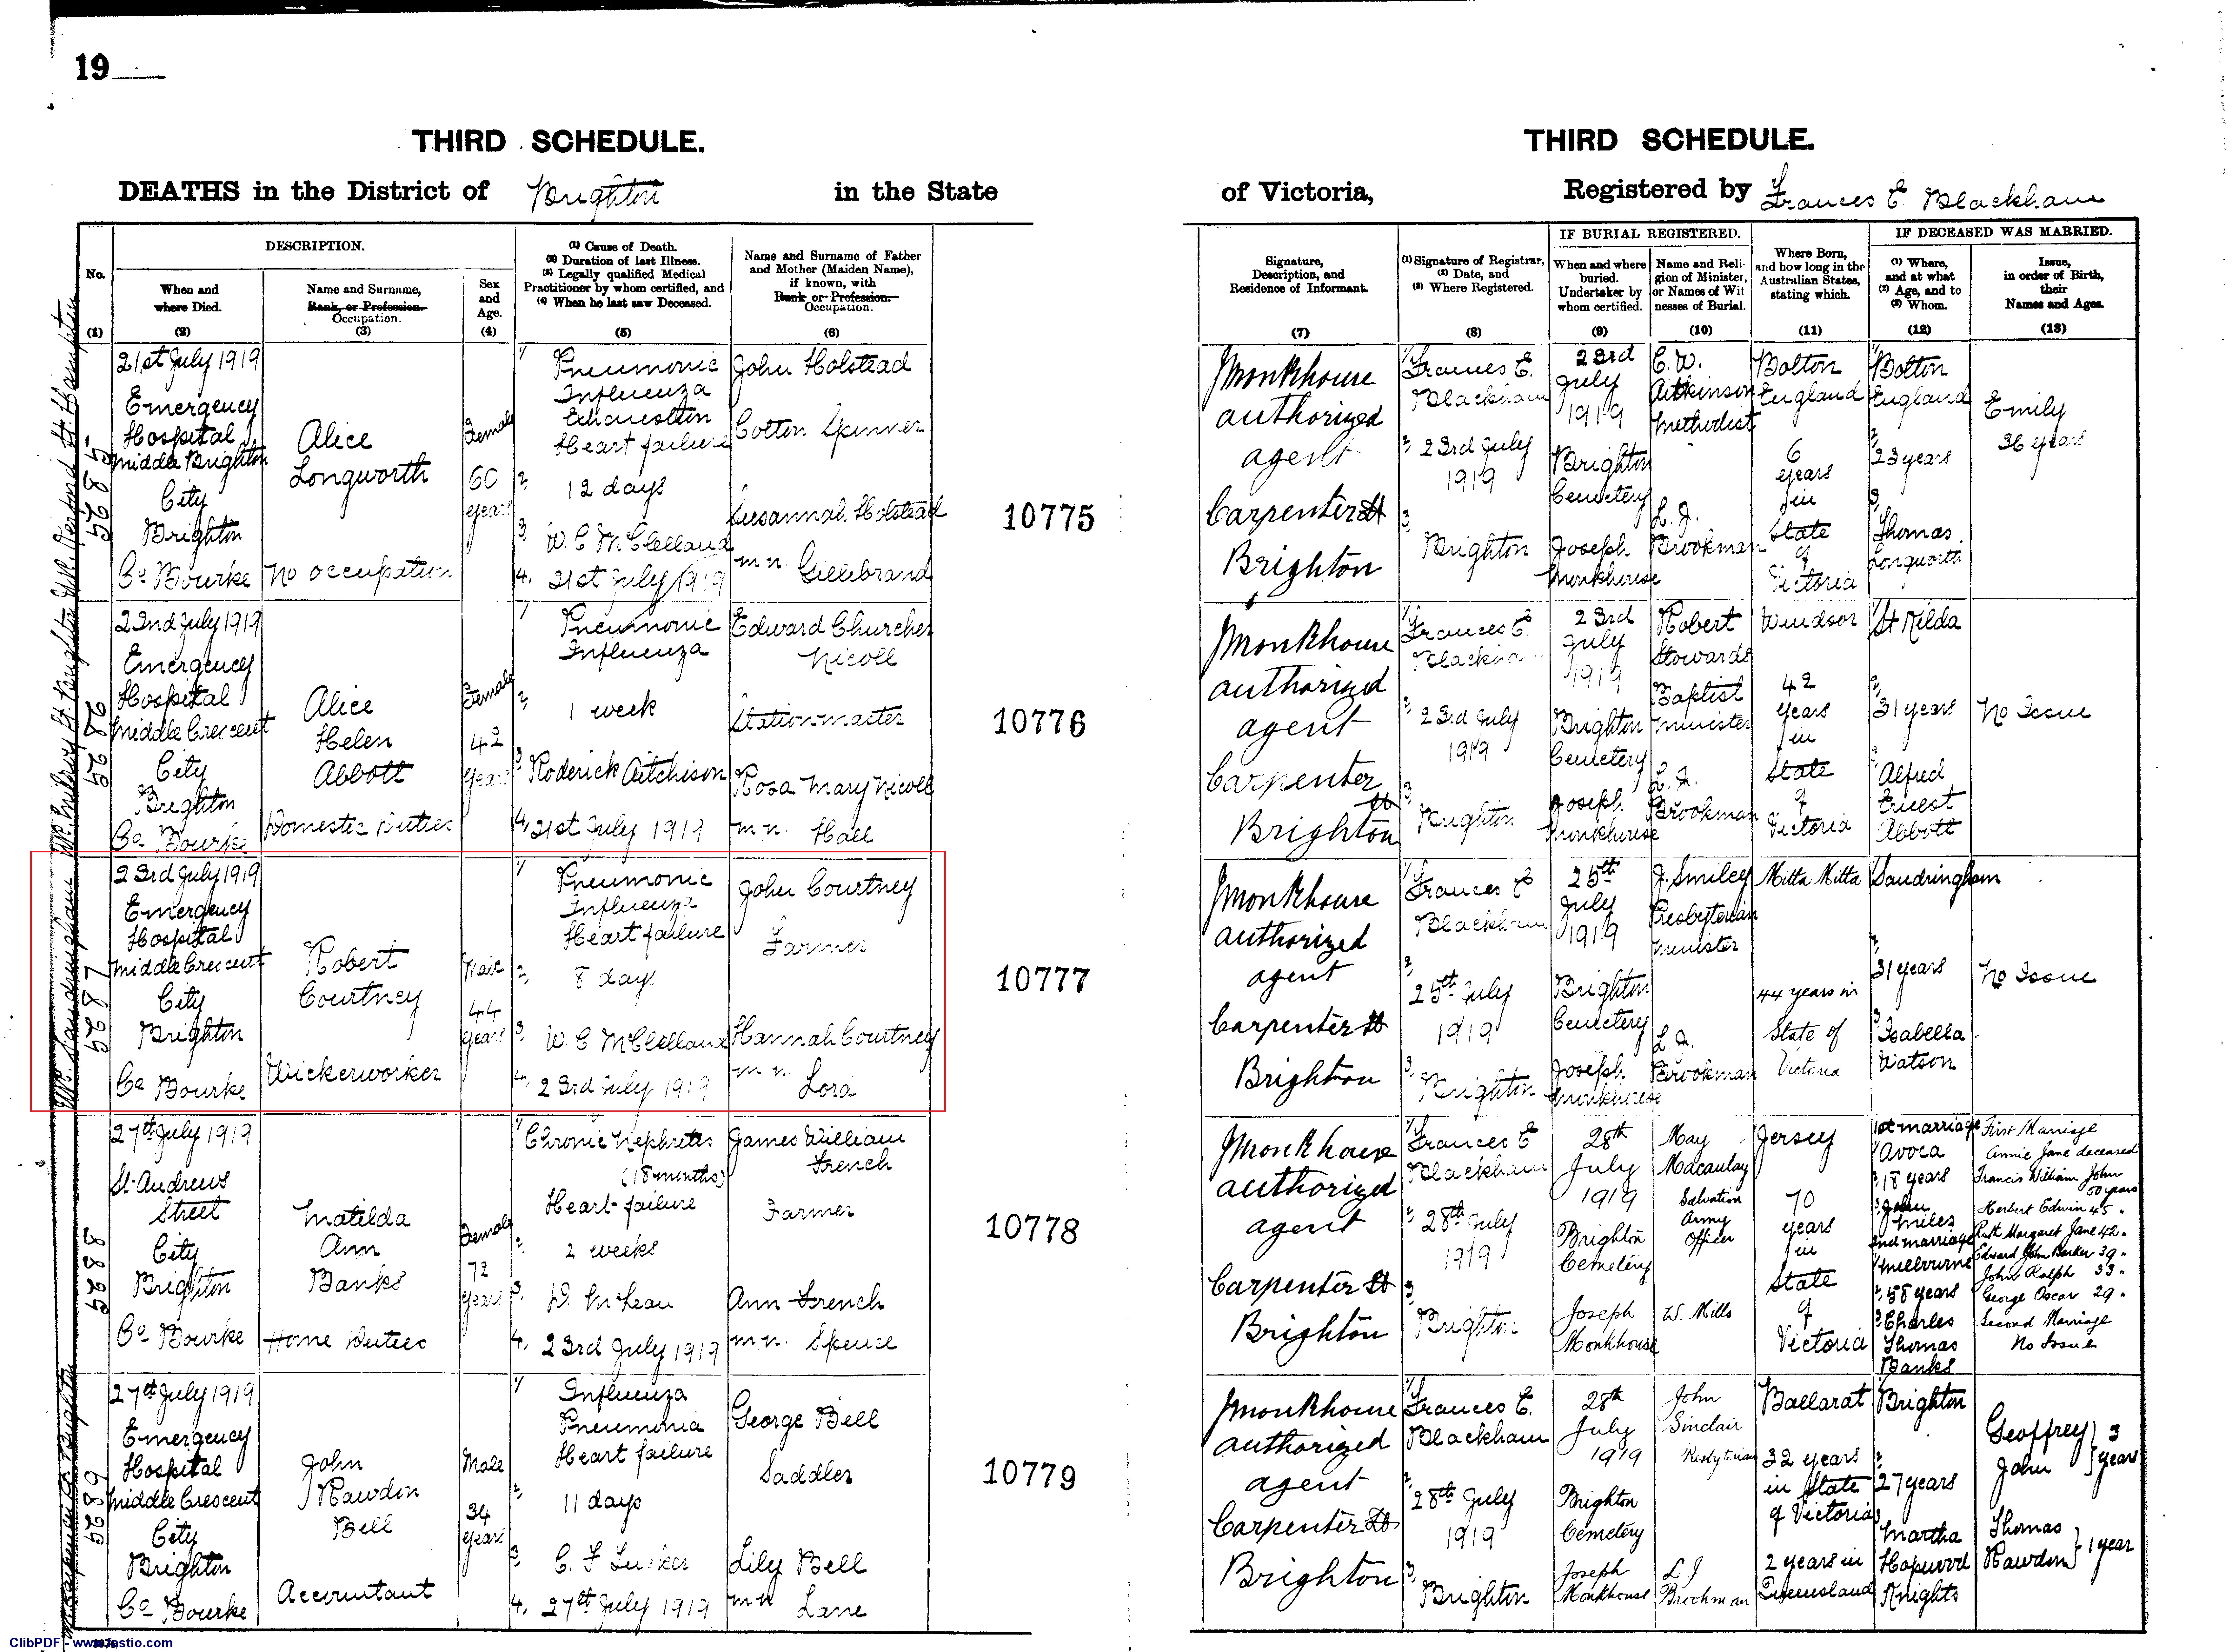 19
THIRD SCHEDULE.
DEATHS in the District of Brighton in the State
No.
(1)
DESCRIPTION.
When and
where Died.
(2)
Name and Surname,
Rank, or Profession.
Occupation.
(3)
Sex
and
Age.
(4)
(1) Cause of Death.
(2) Duration of last Illness.
(3) Legally qualified Medical
Practitioner by whom certified, and
(4) When he last saw Deceased.
(5)
Name and Surname of Father
and Mother (Maiden Name),
if known, with
Rank or Profession.
Occupation.
(6)
5825
21st July 1919
Emergency
Hospital
Middle Brighton
City
Brighton
Co Bourke
Alice
Longworth
No occupation
Female
60
years
1, Pneumonic
Influenza
Exhaustion
Heart failure
2, 12 days
3, W. C McClelland
4, 21st July 1919
John Holstead
Cotton Spinner
Susannah Holstead
m n. Gillibrand
10775
22nd July 1919
Emergency
Hospital
Middle Crescent
City
Brighton
Co Bourke
Alice
Helen
Abbott
Domestic Duties
Female
42
years
1, Pneumonic
Influenza
2, 1 week
3, Roderick Aitchison
4, 21st July 1919
Edward Churcher
Nicoll
Stationmaster
Rosa Mary Nicoll
m n. Hall
10776
5827
23rd July 1919
Emergency
Hospital
Middle Crescent
City
Brighton
Co Bourke
Robert
Courtney
Wickerworker
Male
44
years
1, Pneumonic
Influenza
Heart failure
2, 8 day.
3, W. C McClelland
4, 23rd July 1919
John Courtney
Farmer
Hannah Courtney
m n. Lord
10777
27th July 1919
St Andrews
Street
City
Brighton
Co Bourke
Matilda
Ann
Banks
Home Duties
Female
72
years
1, Chronic Nephrites
(18 months)
Heart failure
2, 2 weeks
3, D. McLean
4, 23rd July 1919
James William
French
Farmer
Ann French
m n. Spence
10778
27th July 1919
Emergency
Hospital
Middle Crescent
City
Brighton
Co Bourke
John
Rawdon
Bell
Accountant
Male
34
years
1, Influenza
Pneumonia
Heart failure
2, 11 days
3, C. F
4, 27th July 1919
George Bell
Saddler
Lily Bell
m n Lane
10779
THIRD SCHEDULE.
of Victoria, Registered by Frances E. Blackham
Signature,
Description, and
Residence of Informant.
(7)
(1) Signature of Registrar,
(2) Date, and
(3) Where Registered.
(8)
IF BURIAL REGISTERED.
When and where
buried.
Undertaker by
whom certified.
(9)
Name and Reli-
gion of Minister,
or Names of Wit
nesses of Burial.
(10)
Where Born,
and how long in the
Australian States,
stating which.
(11)
IF DECEASED WAS MARRIED.
(1) Where,
and at what
(2) Age, and to
(3) Whom.
(12)
Issue,
in order of Birth,
their
Names and Ages.
(13)
J Monkhouse
authorized
agent
Carpenter St
Brighton
1, Frances E.
Blackham
2, 23rd July
1919
3, Brighton
23rd
July
1919
Brighton
Cemetery
Joseph
Monkhouse
C. W.
Aitkinson
Methodist
L. J.
Brookman
Bolton
England
6
years
in
State
of
Victoria
1, Bolton
England
2, 23 years
3, Thomas
Longworth
Emily
36 years
J Monkhouse
authorized
agent
Carpenter
St
Brighton
1, Frances E.
Blackham
2, 23rd July
1919
3, Brighton
23rd
July
1919
Brighton
Cemetery
Joseph
Monkhouse
Robert
Stewards
Baptist
minister
L. J.
Brookman
Windsor
42
years
in
State
of
Victoria
1, St Kilda
2, 31 years
3, Alfred
Ernest
Abbott
No Issue
J Monkhouse
authorized
agent
Carpenter St
Brighton
1, Frances E
Blackham
2, 25th July
1919
3, Brighton
25th
July
1919
Brighton
Cemetery
Joseph
Monkhouse
J. Smiley
Presbyterian
minister
L. J.
Brookman
Mitta Mitta
44 years in
State of
Victoria
Sandringham
2, 31 years
3, Isabella
Watson
No Issue
J Monkhouse
authorized
agent
Carpenter St
Brighton
1, Frances E
Blackham
2, 28th July
1919
3, Brighton
28th
July
1919
Brighton
Cemetery
Joseph
Monkhouse
May
Macaulay
Salvation
Army
Officer
W. Mills
Jersey
70
years
in
State
of
Victoria
1st marriage
1, Avoca
2, 18 years
3, John
Miles
2nd marriage
1, Melbourne
2, 58 years
3, Charles
Thomas
Banks
First Marriage
Annie Jane deceased
Francis William John
50 years
Herbert Edwin 45 "
Ruth Margaret Jane 42 "
Edward John Barker 39 "
John Ralph 33 "
George Oscar 29 "
Second Marriage
No Issue
J Monkhouse
authorized
agent
Carpenter St
Brighton
1, Frances E.
Blackham
2, 28th July
1919
3, Brighton
28th
July
1919
Brighton
Cemetery
Joseph
Monkhouse
John
Sinclair
Presbyterian
L J
Brookman
Ballarat
32 years
in State
of Victoria
2 years in
Queensland
1, Brighton
2, 27 years
3, Martha
Hopwood
Knights
Geoffrey
John } 3 years
Thomas
Rawdon } 1 year
ClibPDF - www.fastio.com